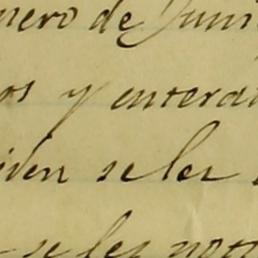 nero de Juni
os y enterad
iden se les
se les noti